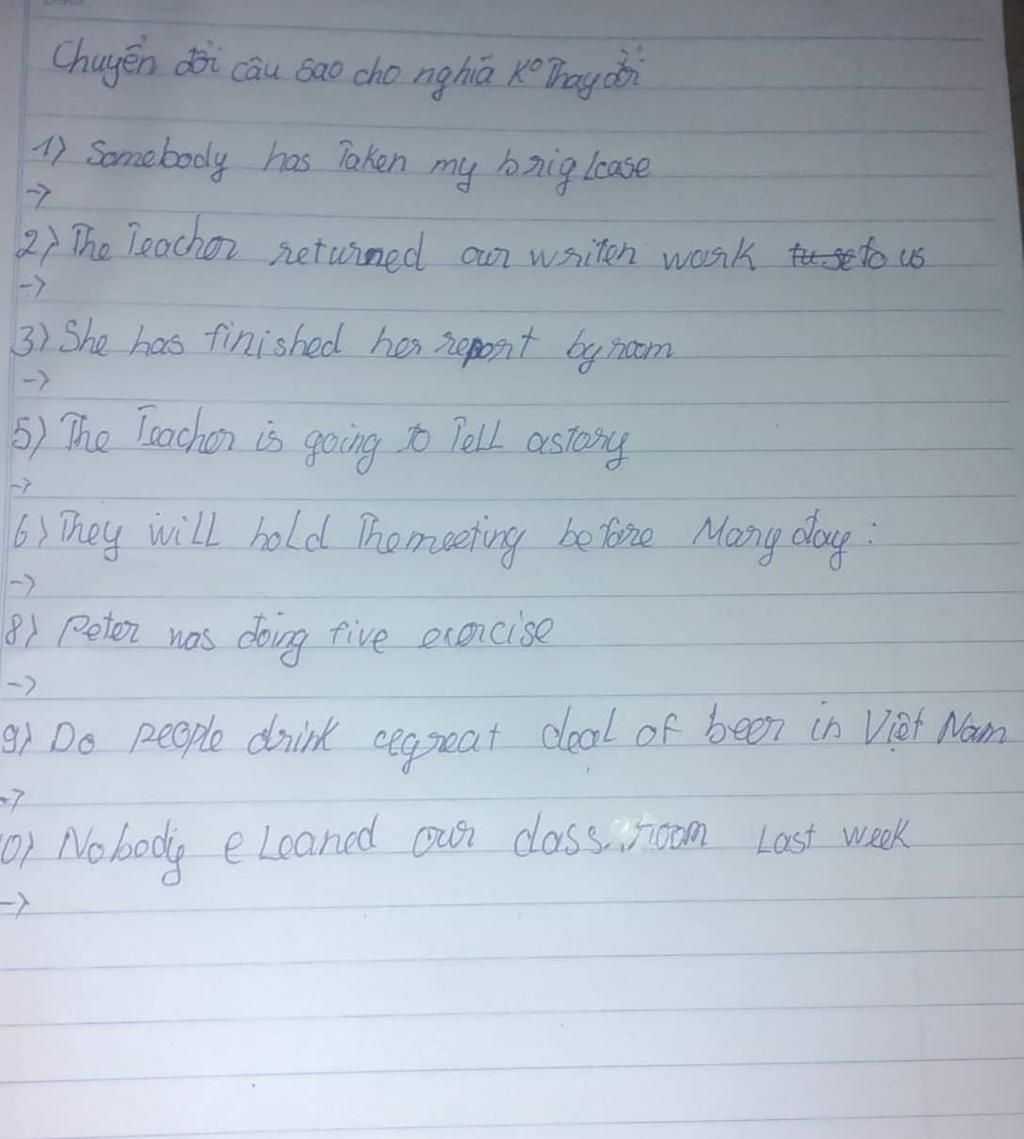 Chuyển đổi câu sao cho nghĩa Ko Thay đổi
1) Somebody has Taken my briglcase
->
2) The Teacher returned our writen work to us
->
3) She has finished her report by room
->
5) The Teacher is going to Tell a story
->
6) They will hold The meeting before Mary day:
->
8) Peter was doing five exercise
->
9) Do people drink a great deal of beer in Việt Nam
->
10) Nobody eleaned our class room Last week
->